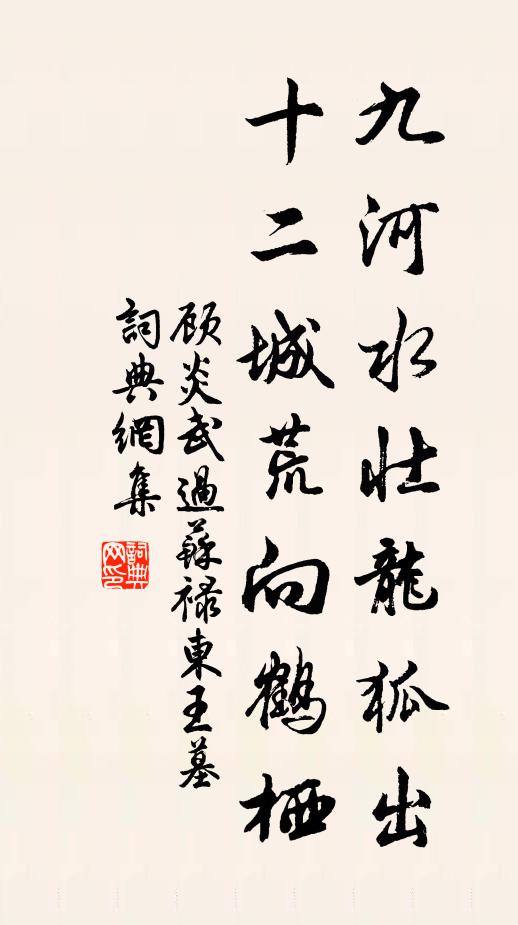 九河水壯龍狐出
十二城荒向鶴栖
顾炎武過蘇禄東王墓
詞典網集
詞典网印